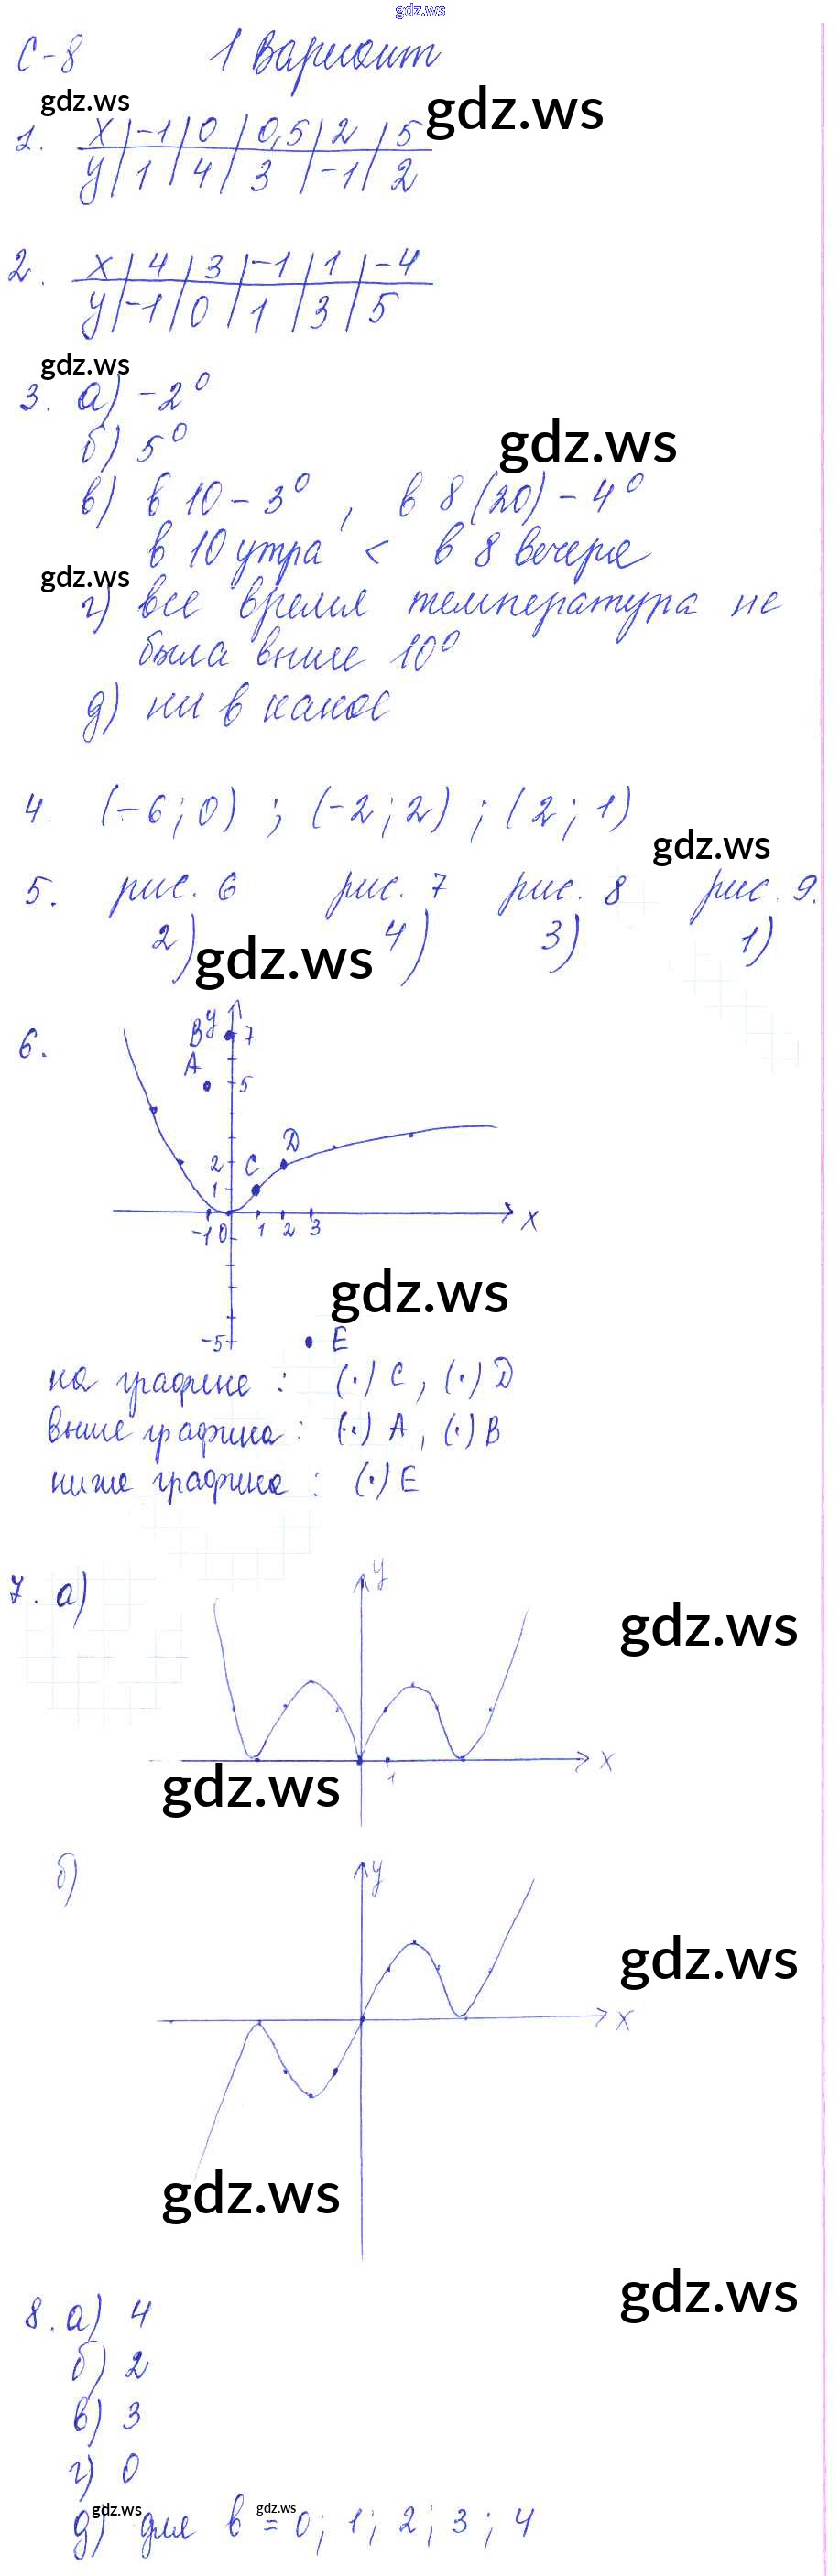 gdz.ws
С-8 1 Вариант
gdz.ws
gdz.ws
1. x | -1 | 0 | 0,5 | 2 | 5
y | 1 | 4 | 3 | -1 | 2
2. x | 4 | 3 | -1 | 1 | -4
y | -1 | 0 | 1 | 3 | 5
gdz.ws
3. а) -2°
б) 5°
gdz.ws
в) в 10 - 3° , в 8 (20) - 4°
в 10 утра < в 8 вечера
gdz.ws
г) все время температура не
была выше 10°
д) ни в какое
4. (-6; 0) ; (-2; 2) ; (2; 1)
gdz.ws
5. рис. 6 рис. 7 рис. 8 рис. 9.
2) 4) 3) 1)
gdz.ws
6.
B y 7
A
5
D
2 C
1
-1 0 1 2 3 x
gdz.ws
-5 E
на графике : (·) C , (·) D
выше графика : (·) A , (·) B
ниже графика : (·) E
7. а) y
gdz.ws
x
1
gdz.ws
б) y
gdz.ws
x
gdz.ws
gdz.ws
8. а) 4
б) 2
в) 3
г) 0
gdz.ws
gdz.ws
д) для b = 0; 1; 2; 3; 4